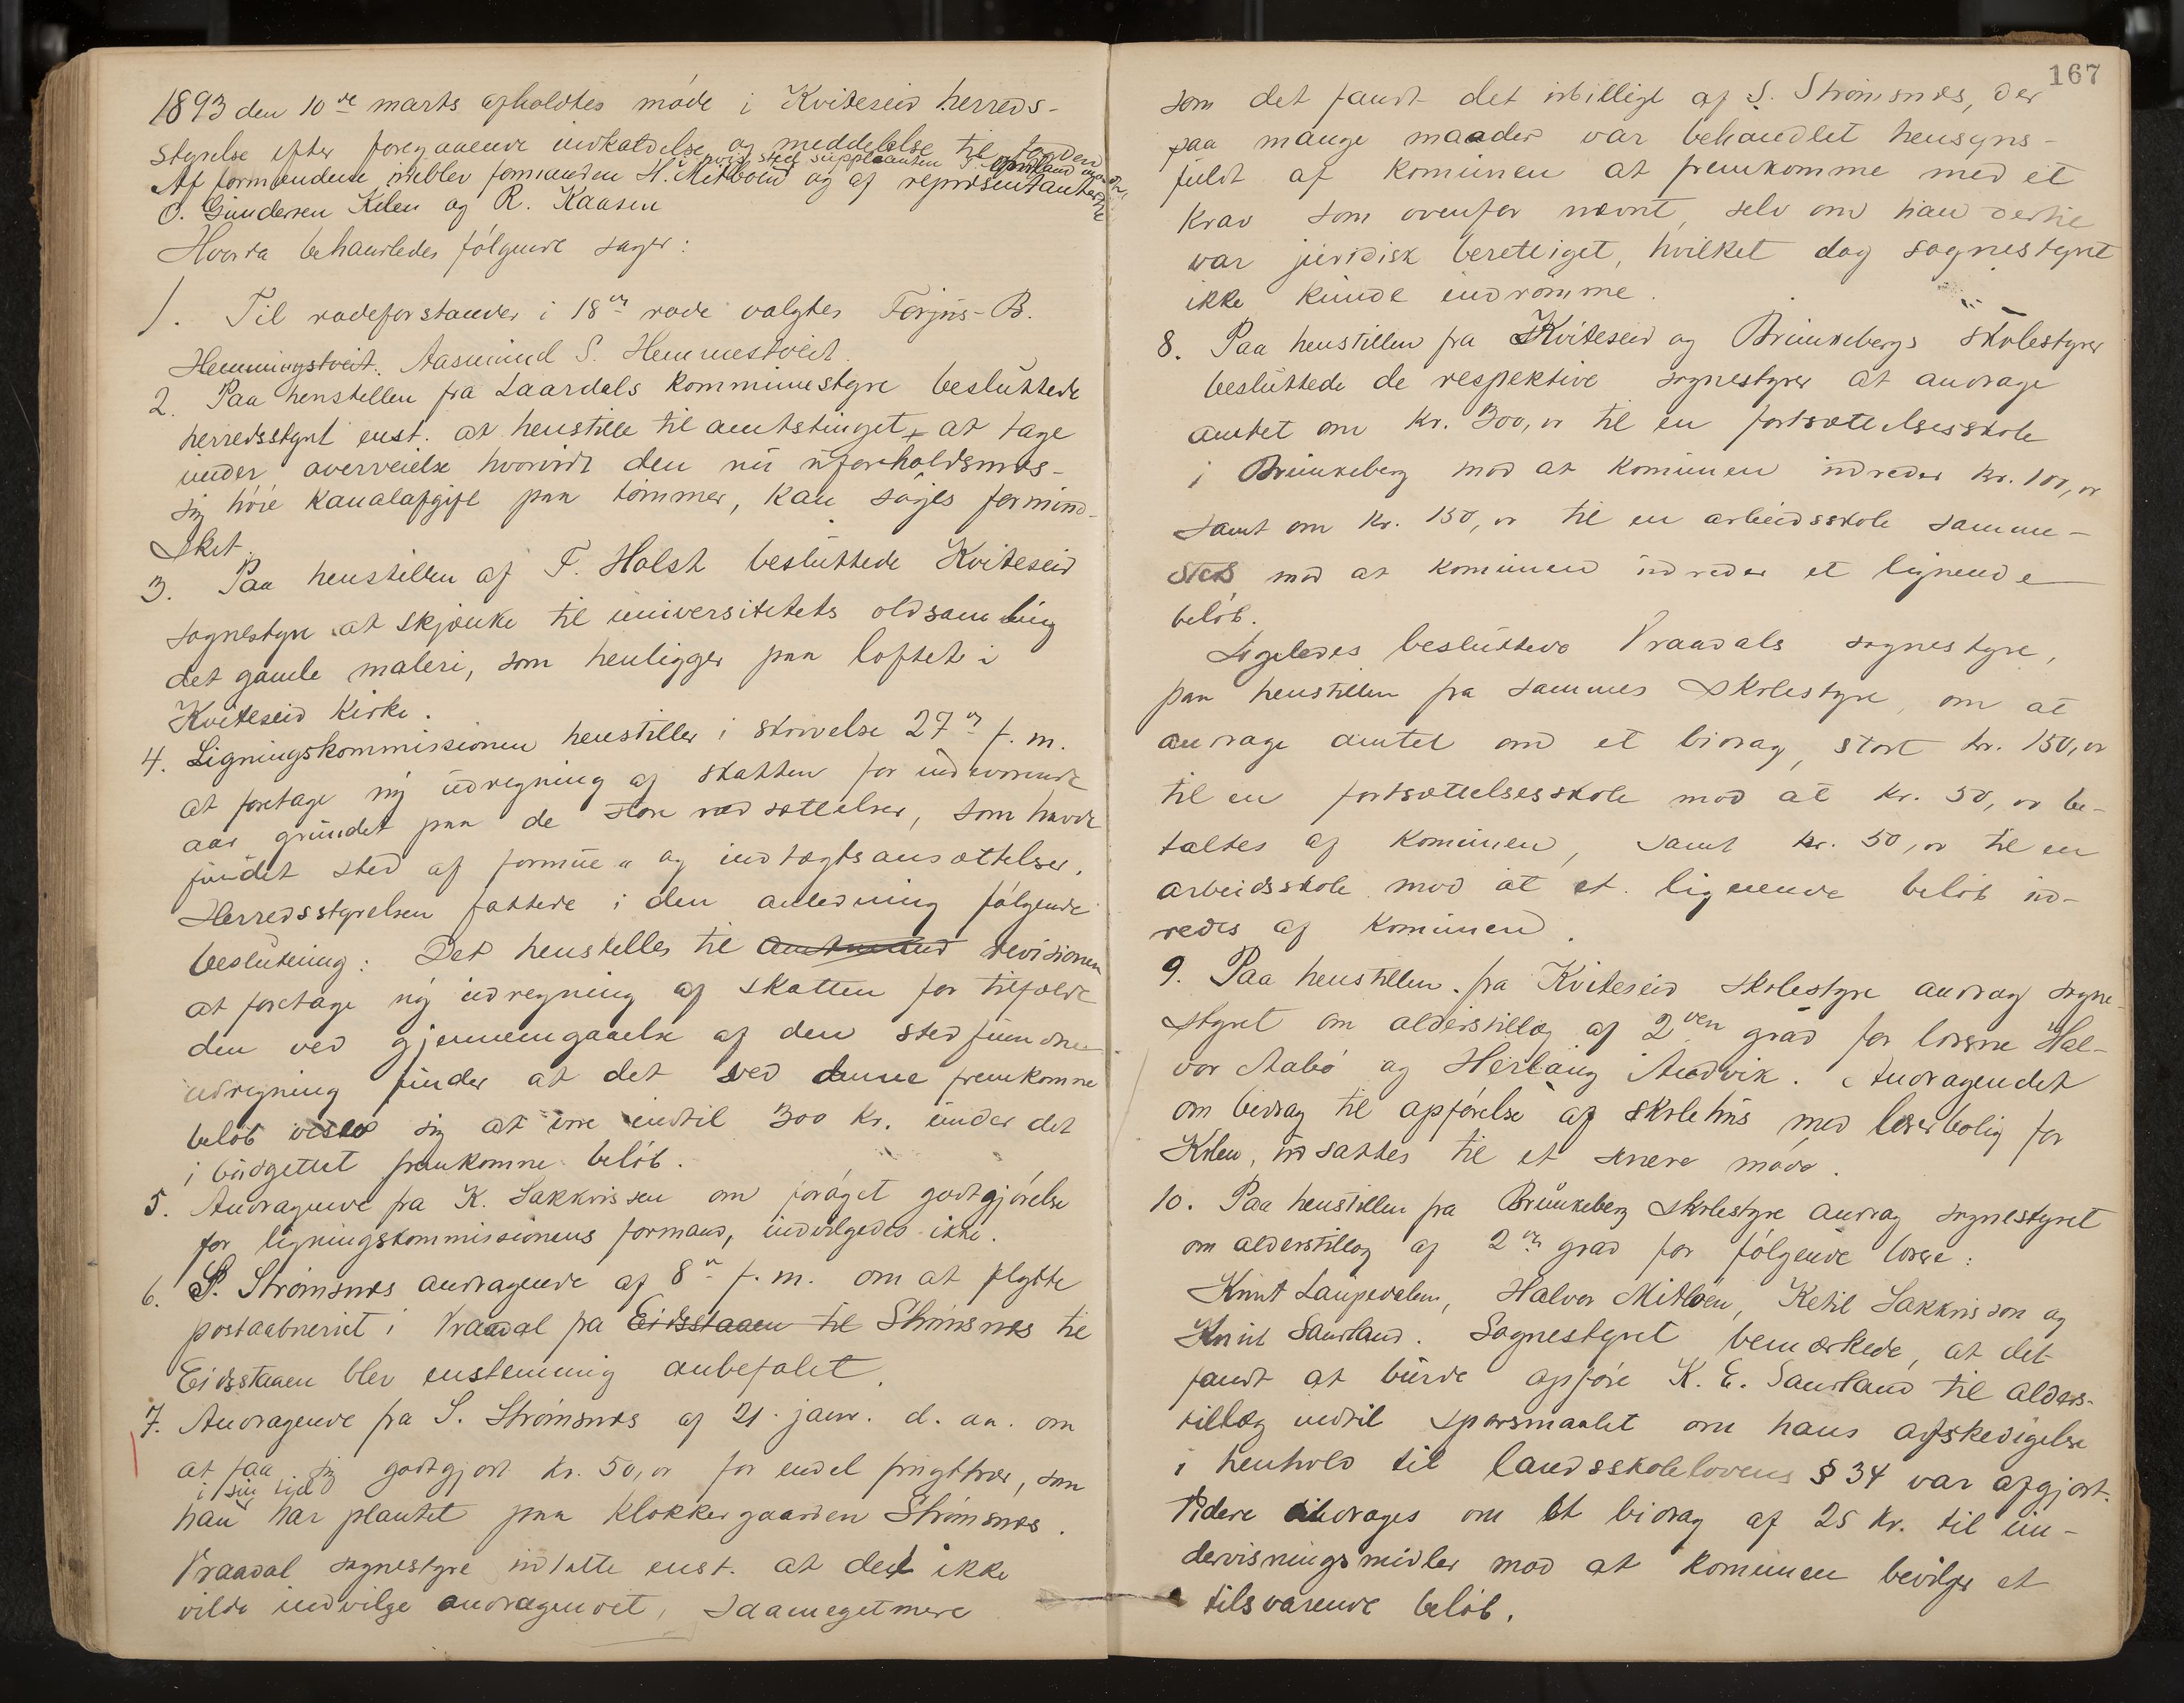 1893 den 10de marts afholdtes møde i Kviteseid herreds-
styrelse efter foregaaende indkaldelse og meddelelse til fogden
i hvis sted suppleanten
Af formændene udeblev formanden H. Mitbøen og af repræsentanterne
O. Gundersen Kilen og R. Kaasen
Hvorda behandledes følgende sager:
1. Til rodeforstander i 18de rode valgtes Torjus B.
Hemmingstveit. Aasmund S. Hemmestveit.
2. Paa henstillen fra Laardals kommunestyre besluttede
herredsstyret enst. at henstille til amtstinget at tage
under overveielse hvorvidt den nu uforholdsmæs-
sig høie kanalafgift paa tømmer, kan søges formind-
sket.
3. Paa henstillen af T. Holst besluttede Kviteseid
sognestyre at skjænke til universitetets oldsamling
det gamle maleri, som henligger paa loftet i
Kviteseid kirke.
4. Ligningskommissionen henstiller i skrivelse 27de f. m.
at foretage ny udregning af skatten for indeværende
aar grundet paa de store nedsættelser, som havde
fundet sted af formue- og indtægtsansættelser.
Herredsstyrelsen fattede i den anledning følgende
beslutning: Det henstilles til amtmand revisionen
at foretage ny udregning af skatten for tilfælde
den ved gjennemgaaelse af den stedfundne
udregning finder at det ved denne fremkomne
beløb viser sig at være indtil 300 kr. under det
i budgettet fremkomne beløb.
5. Andragende fra K. Sakkrissen om forøget godtgjørelse
for ligningskommissionens formand, indvilgedes ikke.
6. S. Strømsnes andragende af 8de f. m. om at flytte
postaabneriet i Vraadal fra Eidsstaaen til Strømsnes til
Eidsstaaen blev enstemmig anbefalet.
7. Andragende fra S. Strømsnes af 21. janr. d. aa. om
at faa sig godtgjort kr. 50,00 for endel frugttrær, som
i sin tid
han har plantet paa klokkergaarden Strømsnes.
Vraadal sognestyre indtatte enst. at det ikke
vilde indvilge andragendet, saameget mere
167
som det fandt det ubilligt af S. Strømsnes, der
paa mange maader var behandlet hensyns-
fuldt af kommunen at fremkomme med et
krav som ovenfor nævnt, selv om han dertil
var juridisk berettiget, hvilket dog sognestyret
ikke kunde indrømme.
8. Paa henstillen fra Kviteseid og Brunkebergs skolestyrer
besluttede de respektive sognestyrer at andrage
amtet om kr. 300,00 til en fortsættelsesskole
i Brunkeberg mod at kommunen udreder kr. 100,00
samt om kr. 150,00 til en arbeidsskole samme-
steds mod at kommunen udreder et lignende
beløb.
Ligeledes besluttede Vraadals sognestyre,
paa henstillen fra sammes skolestyre, om at
andrage amtet om et bidrag, stort kr. 150,00
til en fortsættelsesskole mod at kr. 50,00 be-
taltes af kommunen, samt kr. 50,00 til en
arbeidsskole mod at et lignende beløb ud-
redes af kommunen.
9. Paa henstillen fra Kviteseid skolestyre androg sogne-
styret om alderstillæg af 2den grad for lærerne Hal-
vor Aabø og Herlaug Andvik. Andragendet
om bidrag til opførelse af skolehus med lærerbolig for
Kilen, udsattes til et senere møde.
10. Paa henstillen fra Brunkeberg skolestyre androg sognestyret
om alderstillæg af 2den grad for følgende lærere:
Knut Laupedalen, Halvor Mitbøen, Ketil Sakkrisson og
Knut Saurland. Sognestyret bemærkede, at det
fandt at burde opføre K. E. Saurland til alders-
tillæg indtil spørsmaalet om hans afskedigelse
i henhold til landsskolelovens § 34 var afgjort.
Videre androges om et bidrag af 25 kr. til un-
dervisningsmidler mod at kommunen bevilger et
tilsvarende beløb.